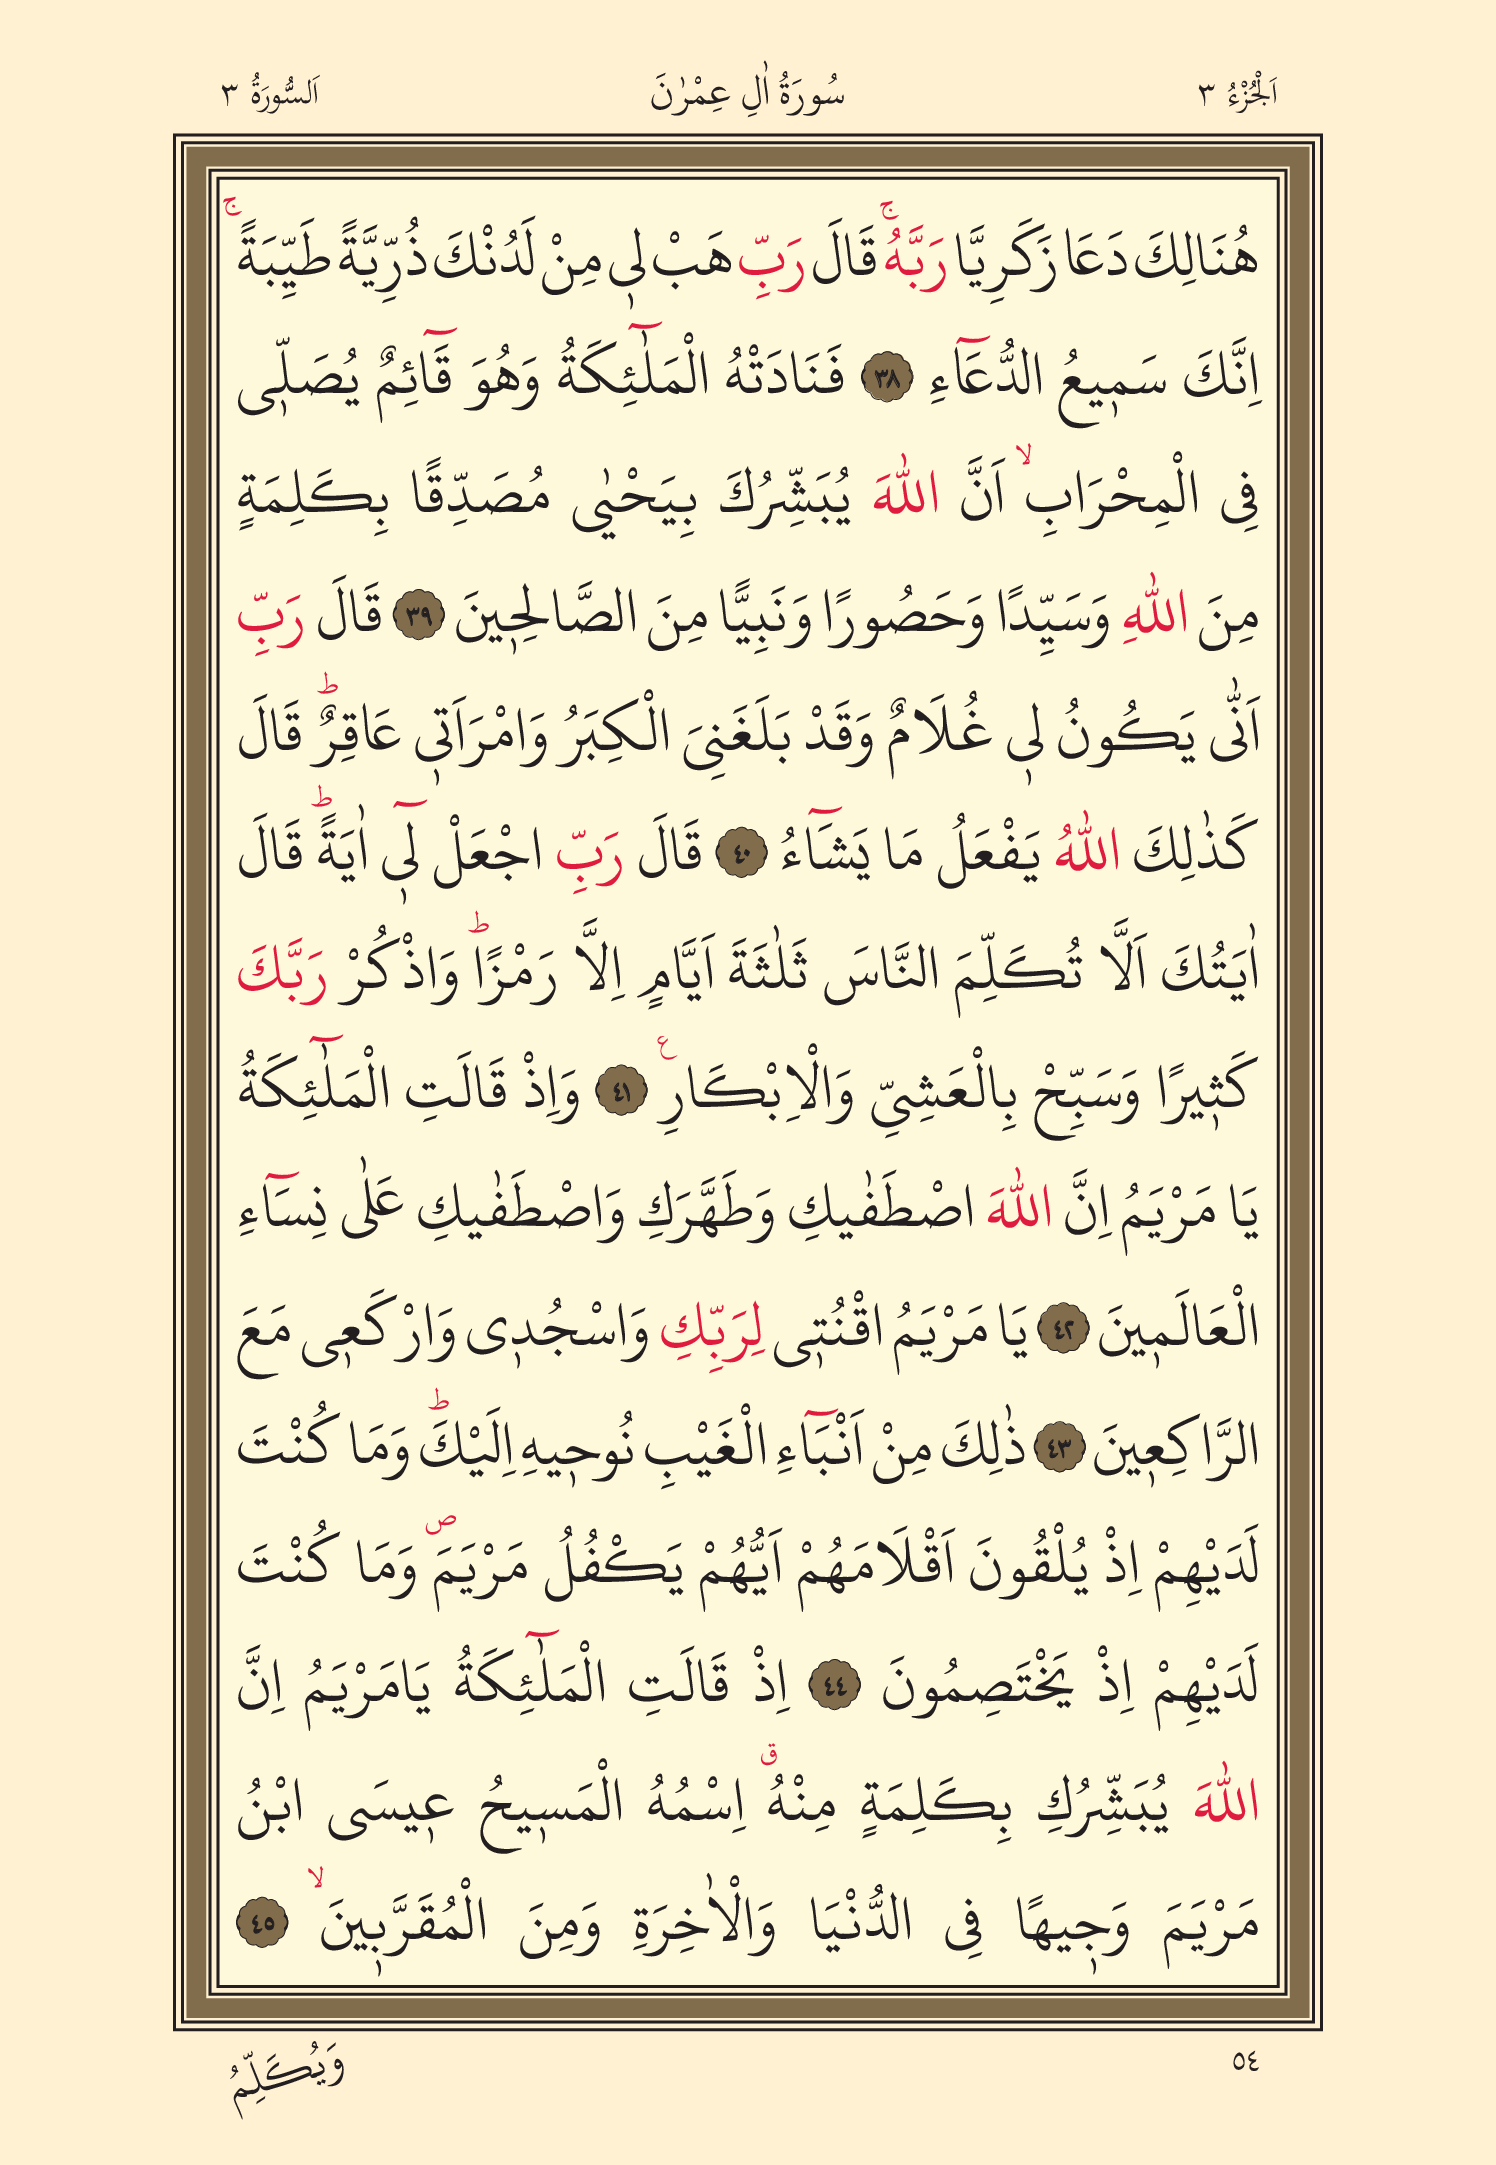 اَلْجُزْءُ ٣
سُورَةُ اٰلِ عِمْرٰنَ
اَلسُّورَةُ ٣
هُنَالِكَ دَعَا زَكَرِيَّا رَبَّهُۚ قَالَ رَبِّ هَبْ ل۪ى مِنْ لَدُنْكَ ذُرِّيَّةً طَيِّبَةًۚ
اِنَّكَ سَم۪يعُ الدُّعَٓاءِ ﴿٣٨﴾ فَنَادَتْهُ الْمَلٰٓئِكَةُ وَهُوَ قَٓائِمٌ يُصَلّ۪ى
فِى الْمِحْرَابِۙ اَنَّ اللّٰهَ يُبَشِّرُكَ بِيَحْيٰى مُصَدِّقًا بِكَلِمَةٍ
مِنَ اللّٰهِ وَسَيِّدًا وَحَصُورًا وَنَبِيًّا مِنَ الصَّالِح۪ينَ ﴿٣٩﴾ قَالَ رَبِّ
اَنّٰى يَكُونُ ل۪ى غُلَامٌ وَقَدْ بَلَغَنِىَ الْكِبَرُ وَامْرَاَت۪ى عَاقِرٌؕ قَالَ
كَذٰلِكَ اللّٰهُ يَفْعَلُ مَا يَشَٓاءُ ﴿٤٠﴾ قَالَ رَبِّ اجْعَلْ ل۪ٓى اٰيَةًؕ قَالَ
اٰيَتُكَ اَلَّا تُكَلِّمَ النَّاسَ ثَلٰثَةَ اَيَّامٍ اِلَّا رَمْزًاؕ وَاذْكُرْ رَبَّكَ
كَث۪يرًا وَسَبِّحْ بِالْعَشِىِّ وَالْاِبْكَارِ ع ﴿٤١﴾ وَاِذْ قَالَتِ الْمَلٰٓئِكَةُ
يَا مَرْيَمُ اِنَّ اللّٰهَ اصْطَفٰيكِ وَطَهَّرَكِ وَاصْطَفٰيكِ عَلٰى نِسَٓاءِ
الْعَالَم۪ينَ ﴿٤٢﴾ يَا مَرْيَمُ اقْنُت۪ى لِرَبِّكِ وَاسْجُد۪ى وَارْكَع۪ى مَعَ
الرَّاكِع۪ينَ ﴿٤٣﴾ ذٰلِكَ مِنْ اَنْبَٓاءِ الْغَيْبِ نُوح۪يهِ اِلَيْكَؕ وَمَا كُنْتَ
لَدَيْهِمْ اِذْ يُلْقُونَ اَقْلَامَهُمْ اَيُّهُمْ يَكْفُلُ مَرْيَمَ ص وَمَا كُنْتَ
لَدَيْهِمْ اِذْ يَخْتَصِمُونَ ﴿٤٤﴾ اِذْ قَالَتِ الْمَلٰٓئِكَةُ يَامَرْيَمُ اِنَّ
اللّٰهَ يُبَشِّرُكِ بِكَلِمَةٍ مِنْهُ ق اِسْمُهُ الْمَس۪يحُ ع۪يسَى ابْنُ
مَرْيَمَ وَج۪يهًا فِى الدُّنْيَا وَالْاٰخِرَةِ وَمِنَ الْمُقَرَّب۪ينَۙ ﴿٤٥﴾
٥٤
وَيُكَلِّمُ